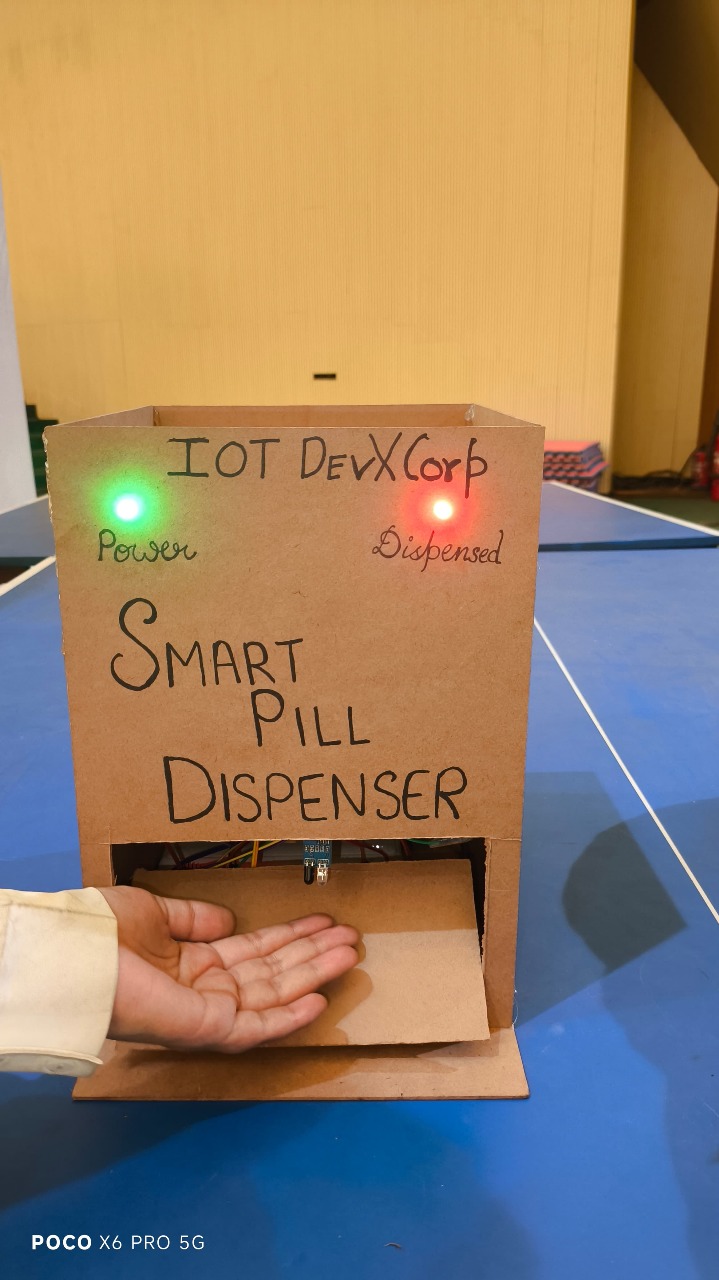 IOT DevXCorp
Power
Dispensed
SMART
PILL
DISPENSER
POCO X6 PRO 5G